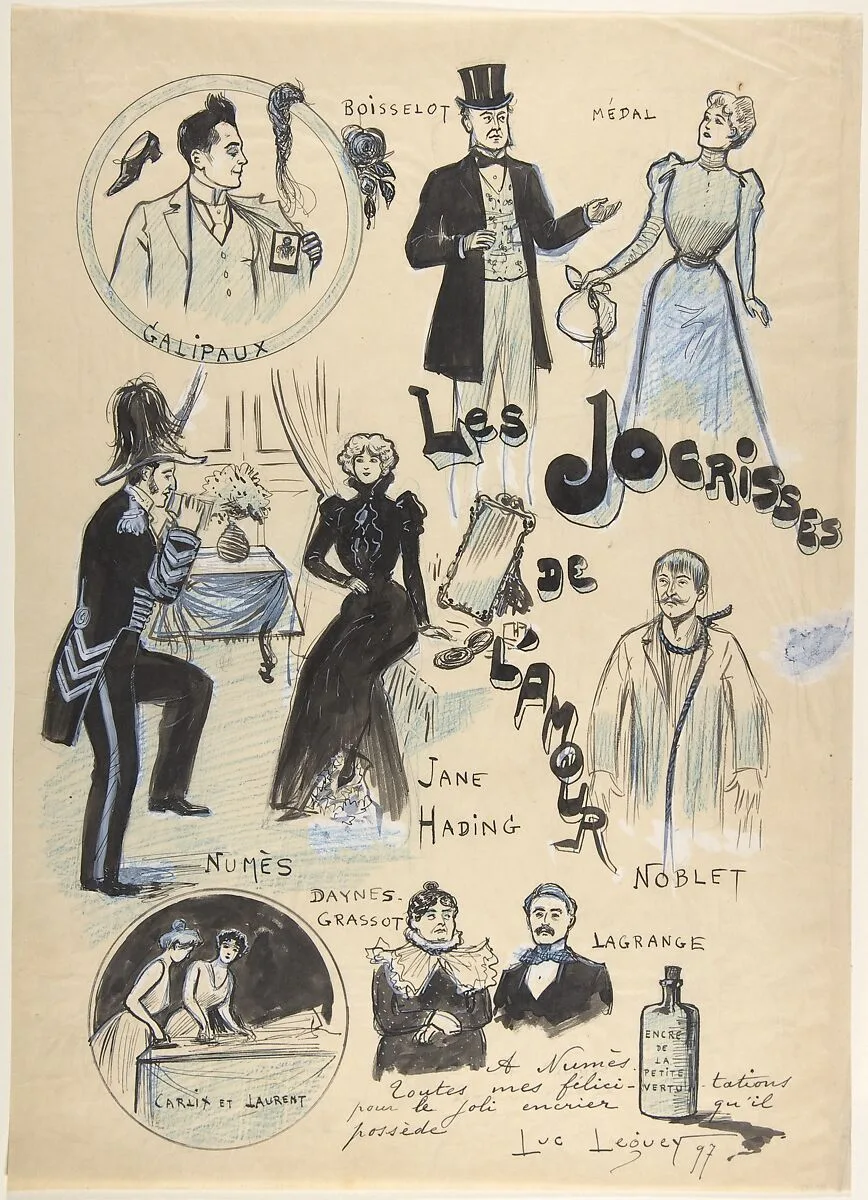 BOISSELOT
MÉDAL
GALIPAUX
LES JOCRISSES
DE
L'AMOUR
JANE
HADING
NUMÈS
NOBLET
DAYNES-
GRASSOT
LAGRANGE
CARLIX ET LAURENT
ENCRE
DE
LA
PETITE
VERTU
A Numès.
Toutes mes félici-tations
pour le joli encrier qu'il
possède
Luc Leguey 97